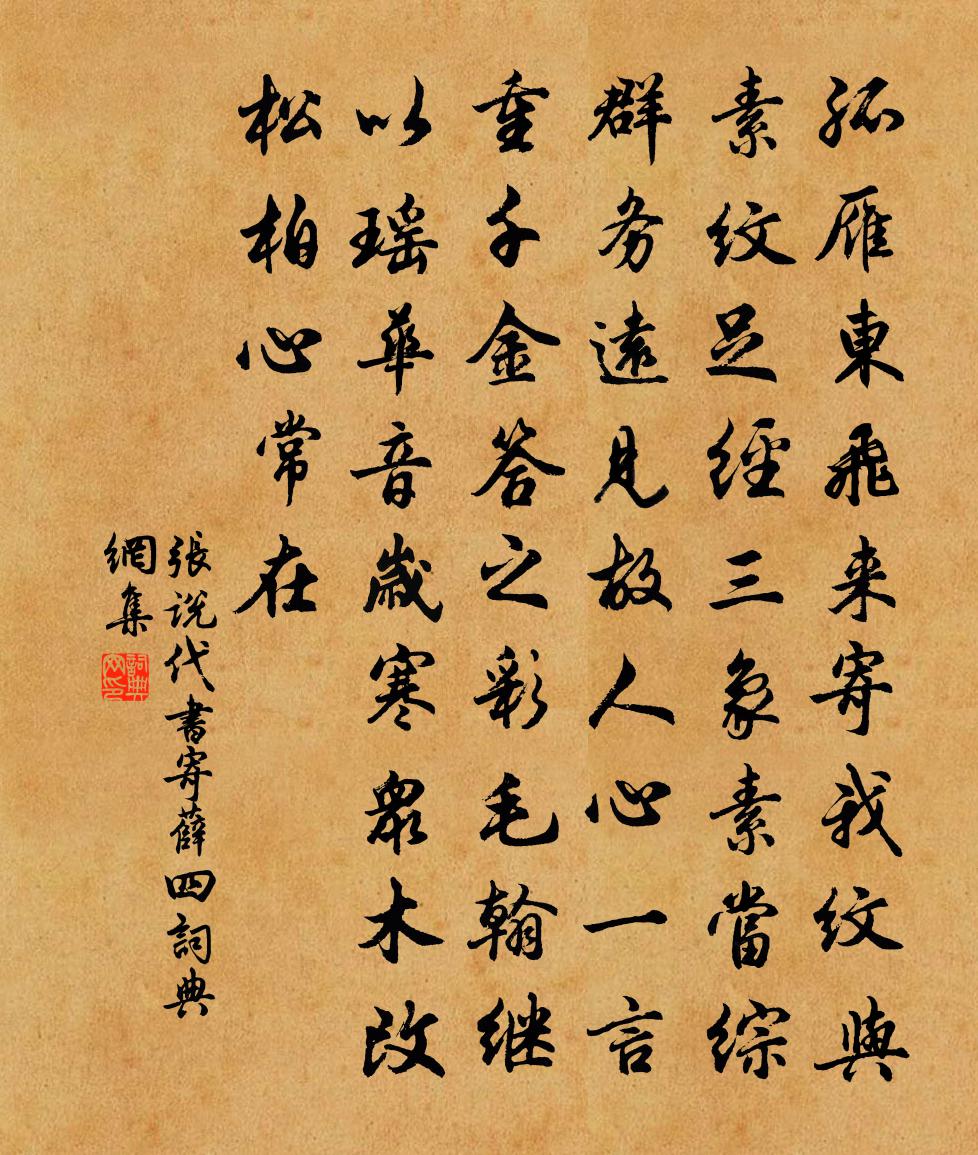 孤雁東飛来寄我紋與
素紋足經三象素當綜
群务遠見故人心一言
重千金答之彩毛翰继
以瑶華音歳寒眾木改
松柏心常在
張说代書寄薛四詞典
網集
詞典